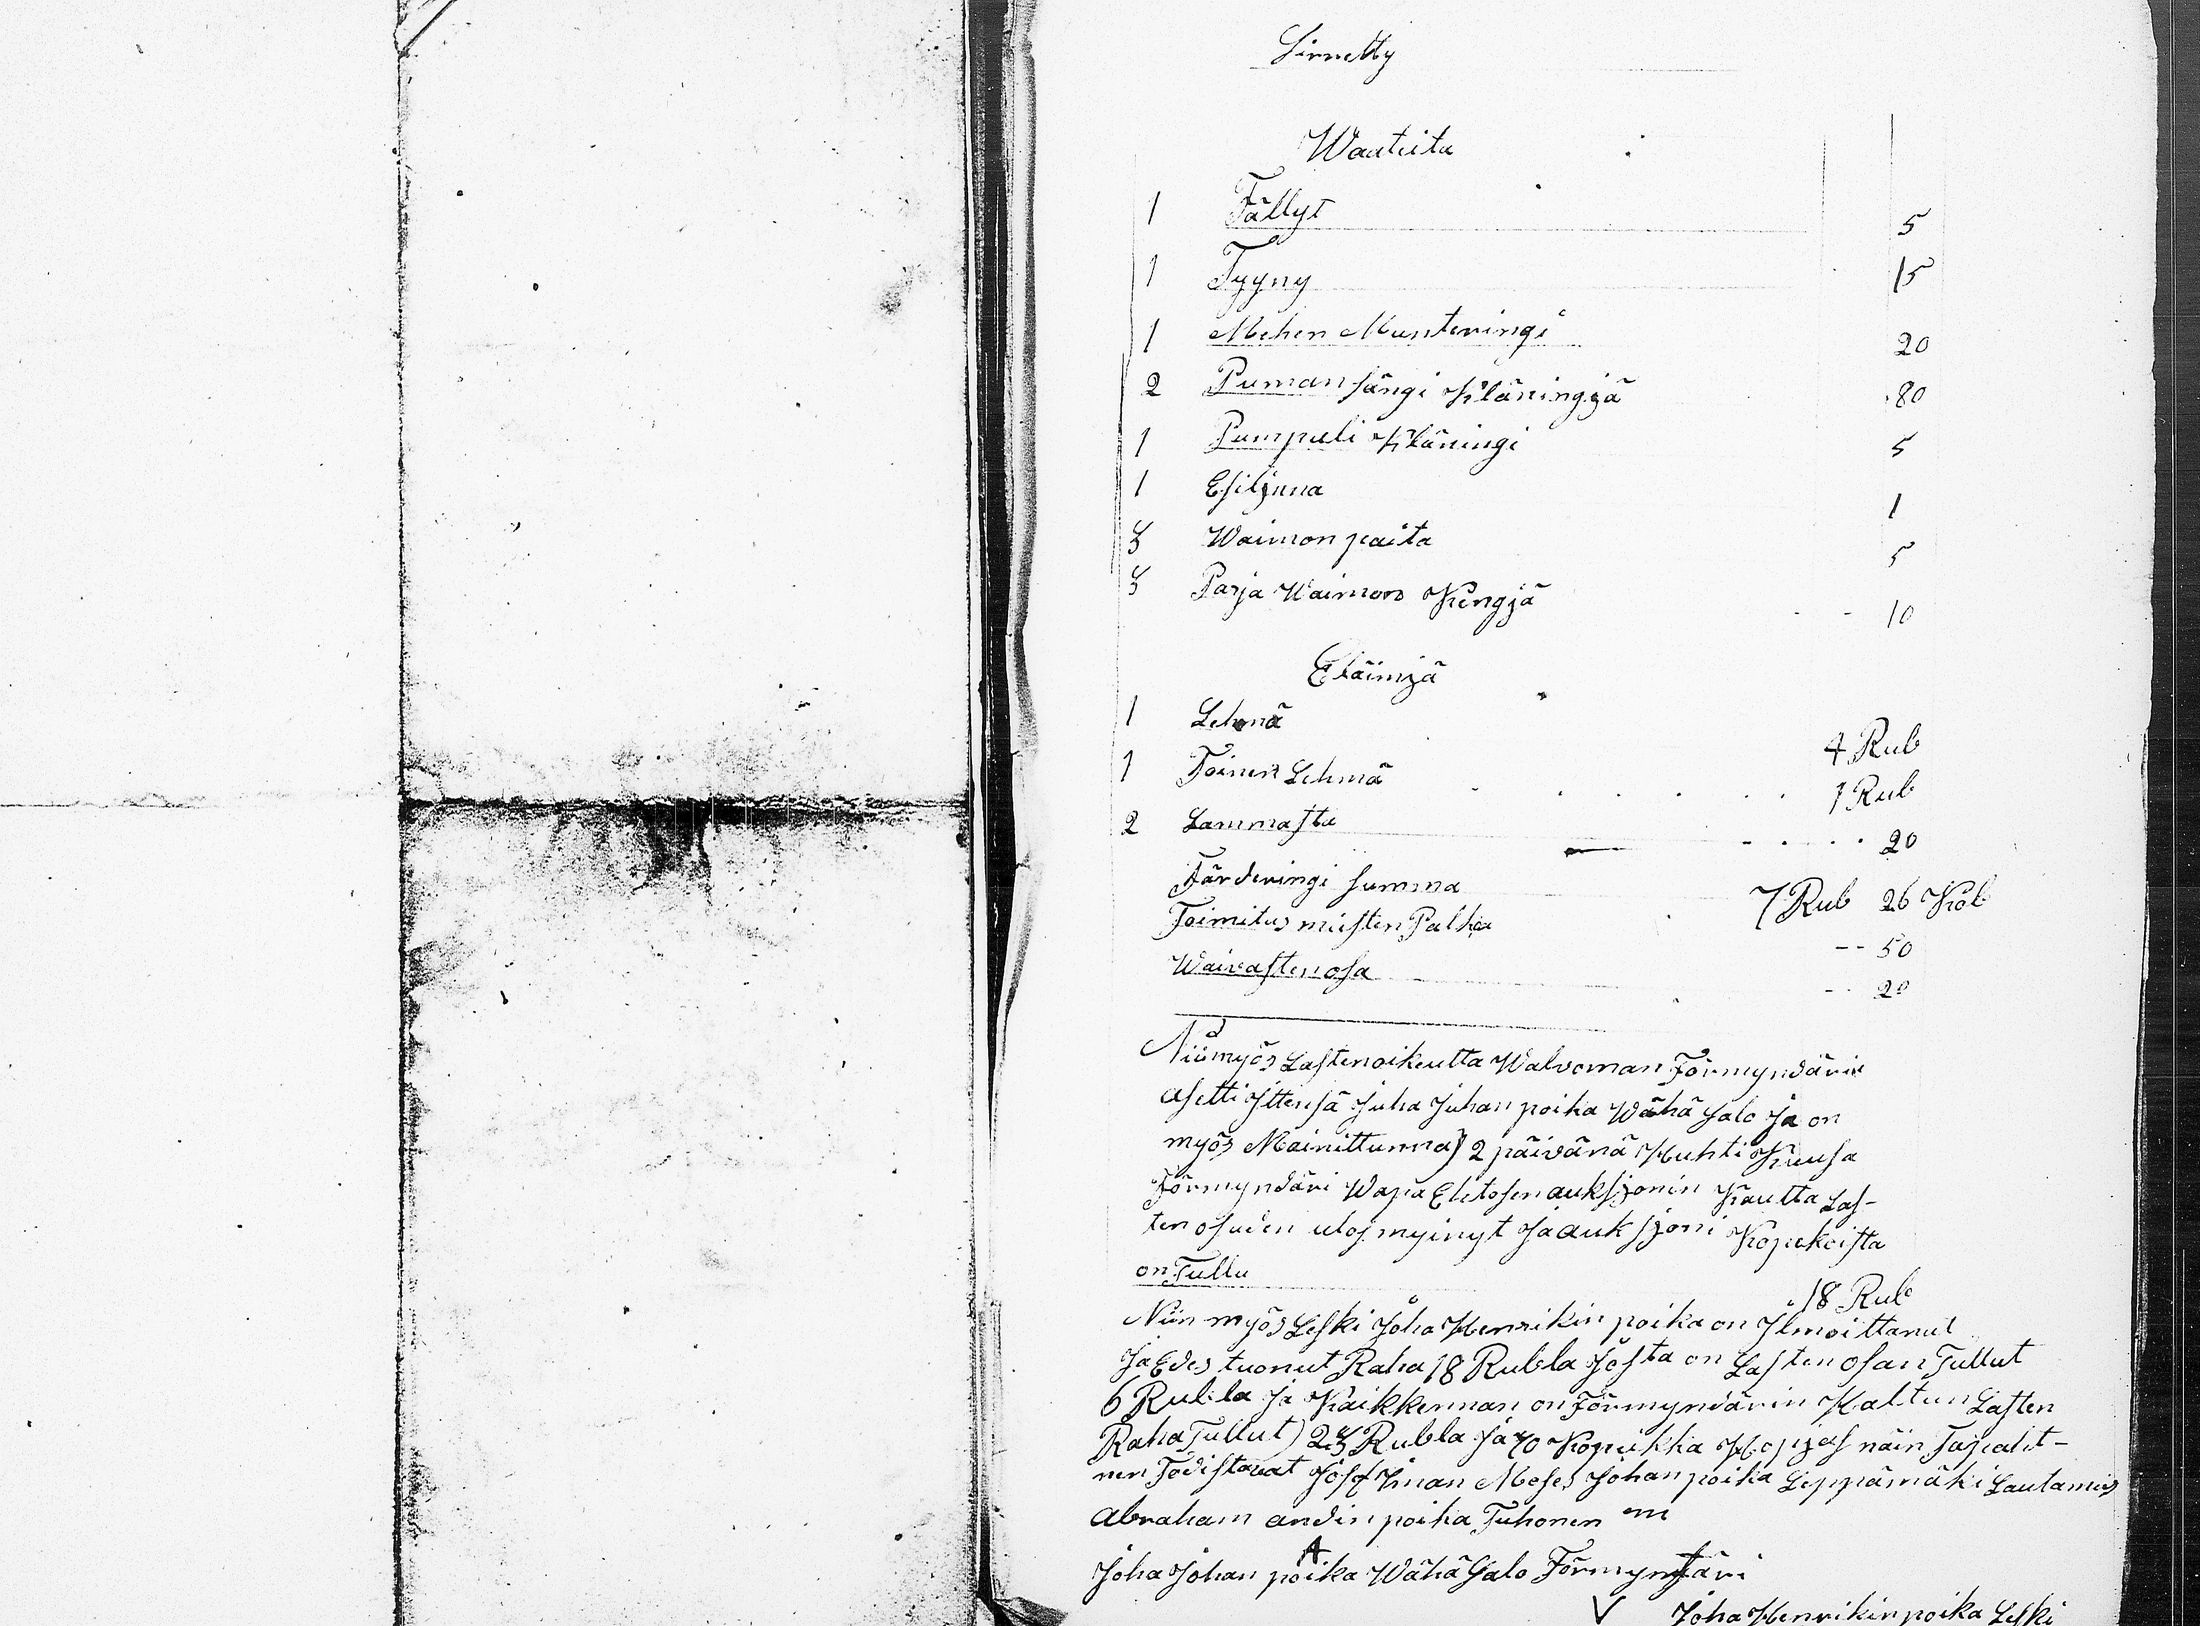 Siirretty
Waateita
1 Fällyt 5
1 Tyyny 15
1 Mehen Munteringi 20
2 Puman sängi Kläningjä 80
1 Pumpuli Kläningi 5
1 Esiljina 1
3 Waimon paita 5
3 Parja Waimon Kengjä 10
Eläimjä
1 Lehmä 4 Rub
1 Toinen Lehmä 1 Rub
2 Lammasta 20
Färderingi summa 7 Rub 26 Kob
Toimitus miesten Palka 50
Waivasten osa 20
Niin myös Lasten oikeutta Walvoman Förmyndäriä
asetti Jttensä Juha Juhan poika Wähä Salo Ja on
myös Mainittunna 2 päivänä Huhti Kuusa
Förmyndäri Wapa Ehtosen auksjonin Kautta Las-
ten osuden ulos myinyt Ja auksjoni Kopekoista
on Tullu 18 Rub
Niin myös Leski Joha Henrikin poika on Jlmoittanut
Ja Edes tuonut Raha 18 Rubla Josta on Lasten osan Tullut
6 Rubla Ja Kaikkennan on Förmyndärin Haltun Lasten
Raha Tullut 23 Rubla Ja 70 Kopeikka Hopjas näin Tapaht-
nen Todistavat Moses Johan poika Leppämäki Lautamies
Abraham andin poika Tuhonen
Joha Johan poika Wähä Salo Förmyntäri
Joha Henrikin poika Leski